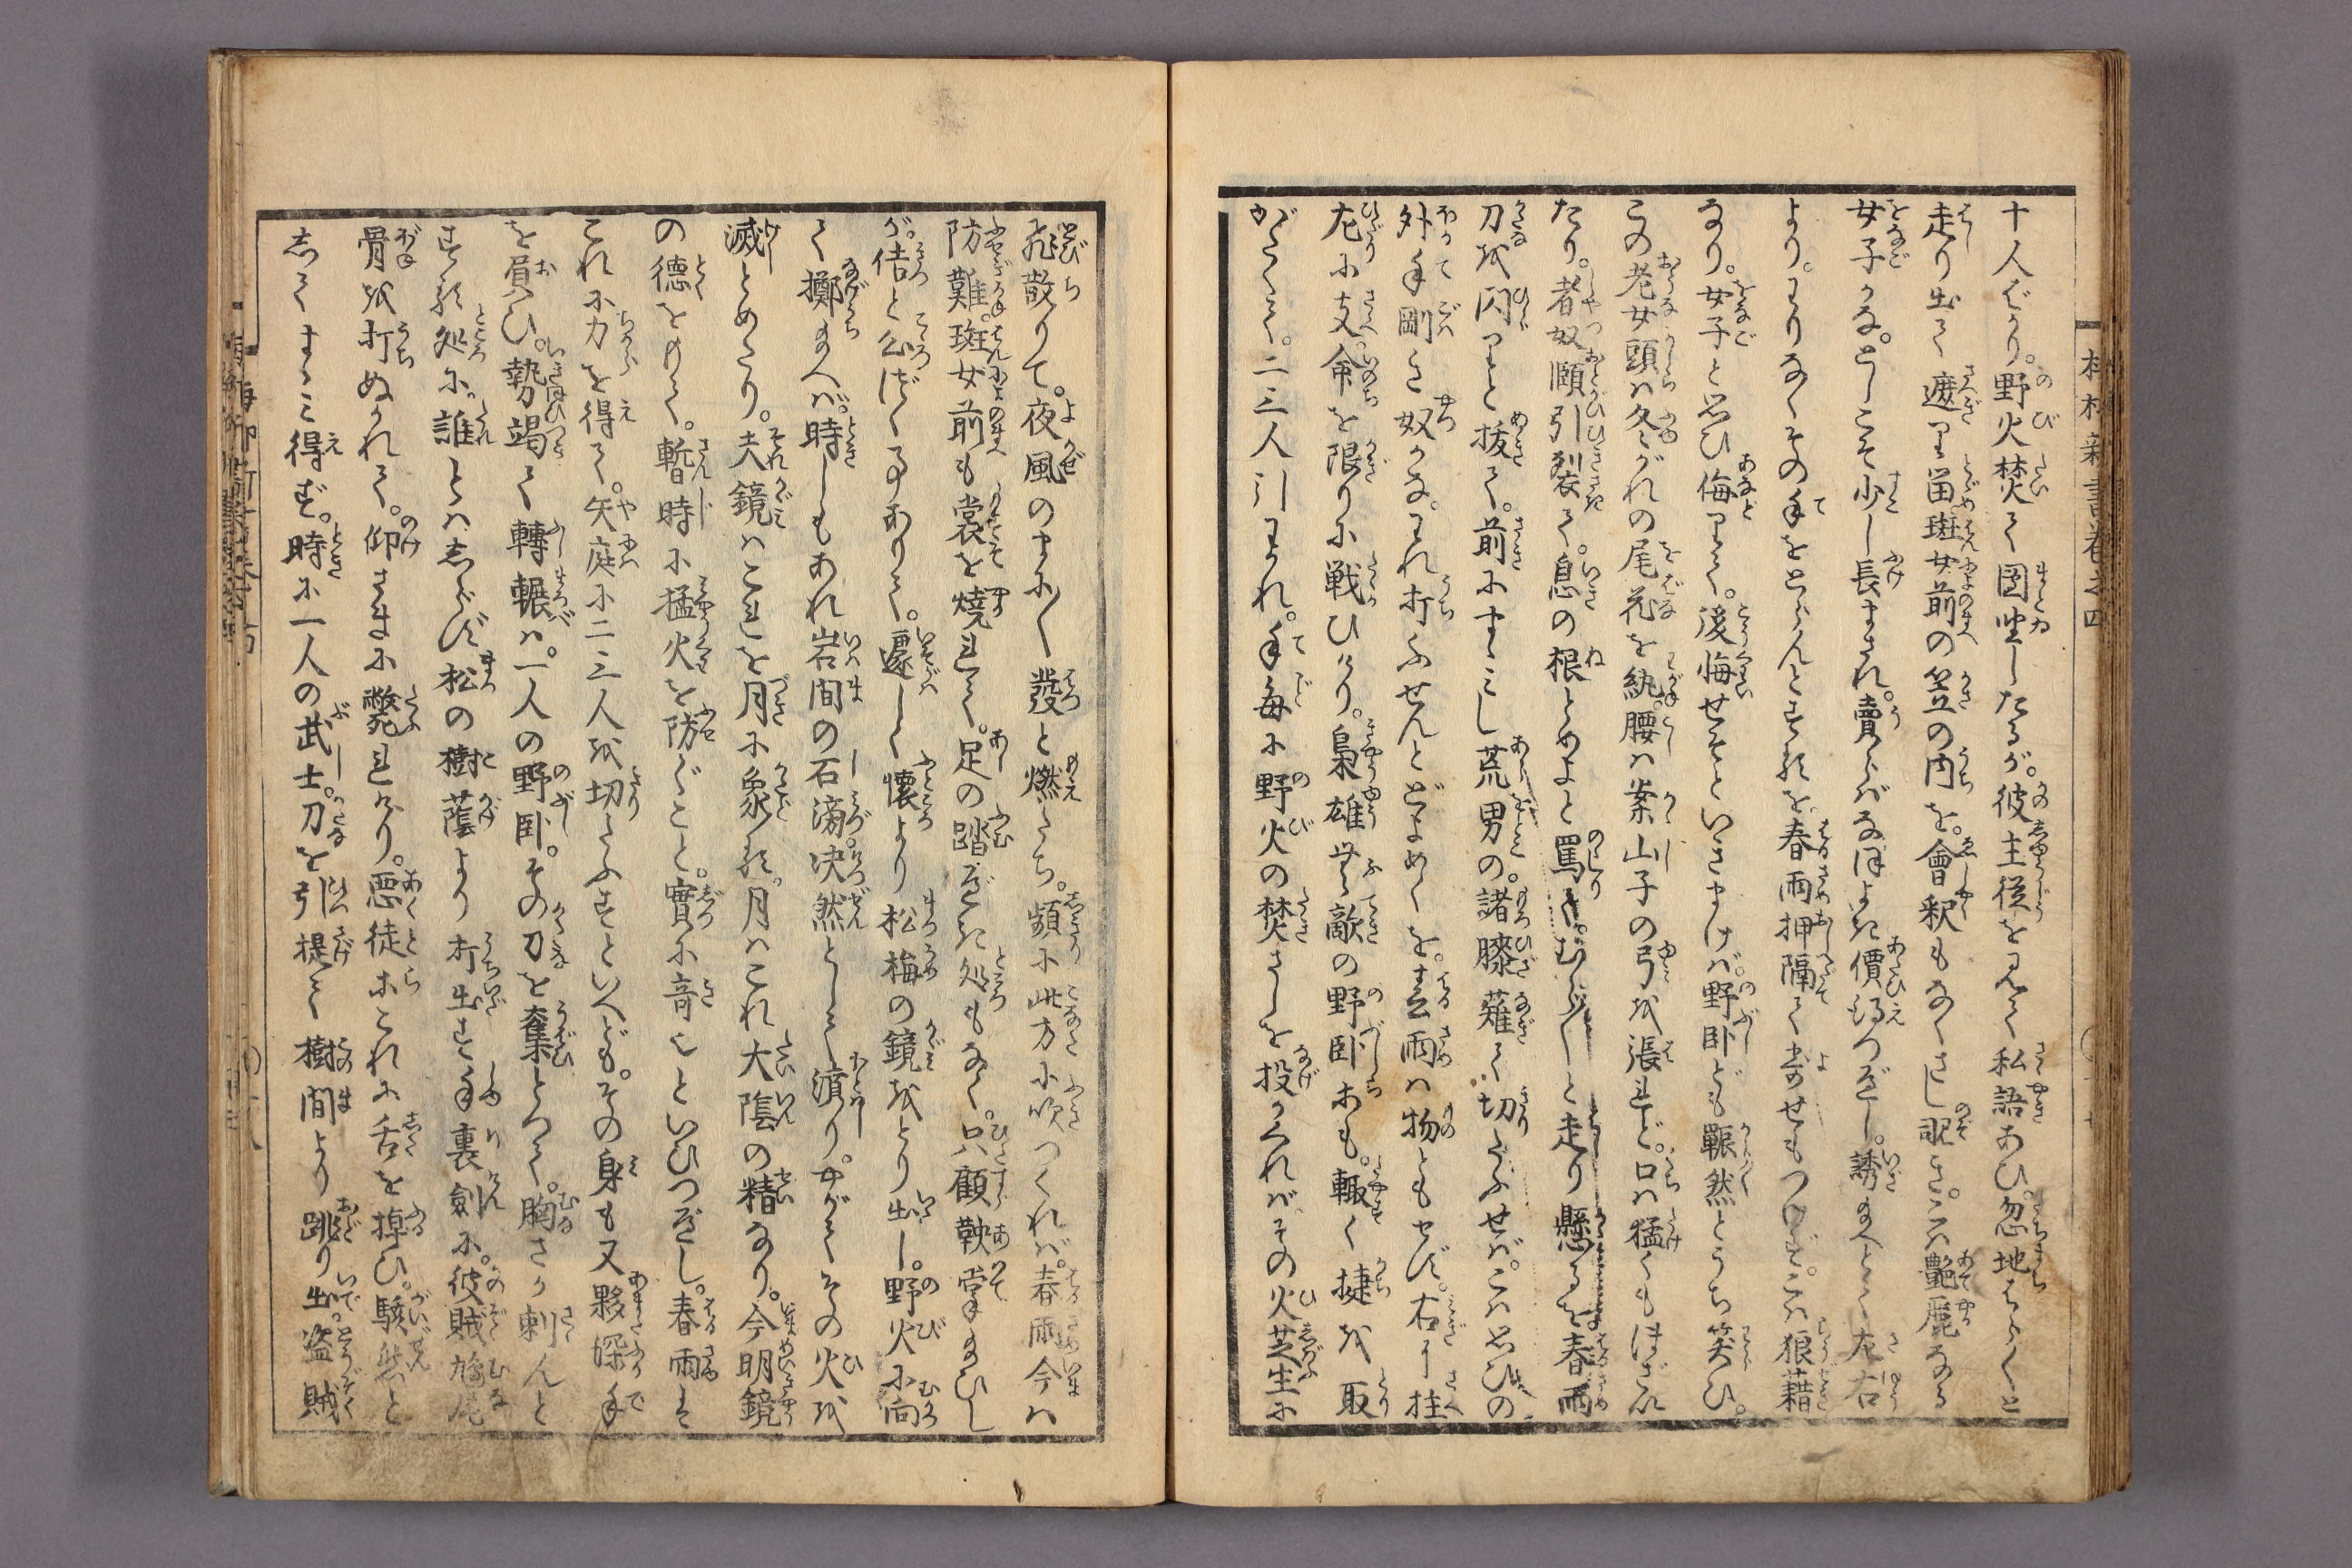 十人ばかり。野火焚て團坐したるが。彼主従を見て私語あひ。忽地はら〳〵と
走り出て遮り留。斑女前の笠の内を。會釈もなくさし覗き。こは艶麗なる
女子かな。としこそ少し長まされ。賣らばなほよき價得つべし。誘給へとて左右
より。わりなくその手をとらんとするを。春雨押隔て寄せもつけず。こは狼藉
なり。女子と思ひ侮りて。後悔せそといさまけば。野臥ども囅然とうち笑ひ。
この老女頭は冬がれの尾花を紈。腰は案山子の弓を張れど。口は猛くもほざい
たり。者奴頤引裂て。息の根とめよと罵て。むら〳〵と走り懸るを春雨
刀を閃りと抜て。前にすゝみし荒男の。諸膝薙て切たふせば。こは思ひの
外手剛き奴かな。われ打ふせんとどよめくを。春雨は物ともせず。右に拄
左に支。命を限りに戦ひけり。梟雄無敵の野臥木も。輙く捷を取
がたくて。二三人引わかれ。手毎に野火の焚さしを投かくれば。その火芝生に
飛散りて。夜風のまに〳〵發と燃たち。頻に此方に吹つくれば。春雨今は
防難。斑女前も裳を焼れて。足の踏べき処もなく。只顧鞅掌給ひし
が。佶と心づく事ありて。遽しく懐より松梅の鏡をとり出し。野火に向
て擲給へば。時しもあれ岩間の石滴。決然として濆り。やがてその火を
滅とめたり。夫鏡はこれを月に象る。月はこれ大陰の精なり。今明鏡
の徳をのもて。暫時に猛火を防ぐこと。實に奇也といひつべし。春雨は
これに力を得て。矢庭に二三人を切たふすといへども。その身も又夥深手
を負ひ。勢竭て轉輾ば。一人の野臥。その刀を奪とつて。胸さか刺んと
する処に。誰とはしらず松の樹蔭より打出す手裏劍に。彼賊鳩尾
骨を打ぬかれて。仰さまに斃れけり。悪徒等これに舌を掉ひ。駭然と
してすゝみ得ず。時に一人の武士。刀を引提て樹間より跳り出。盗賊